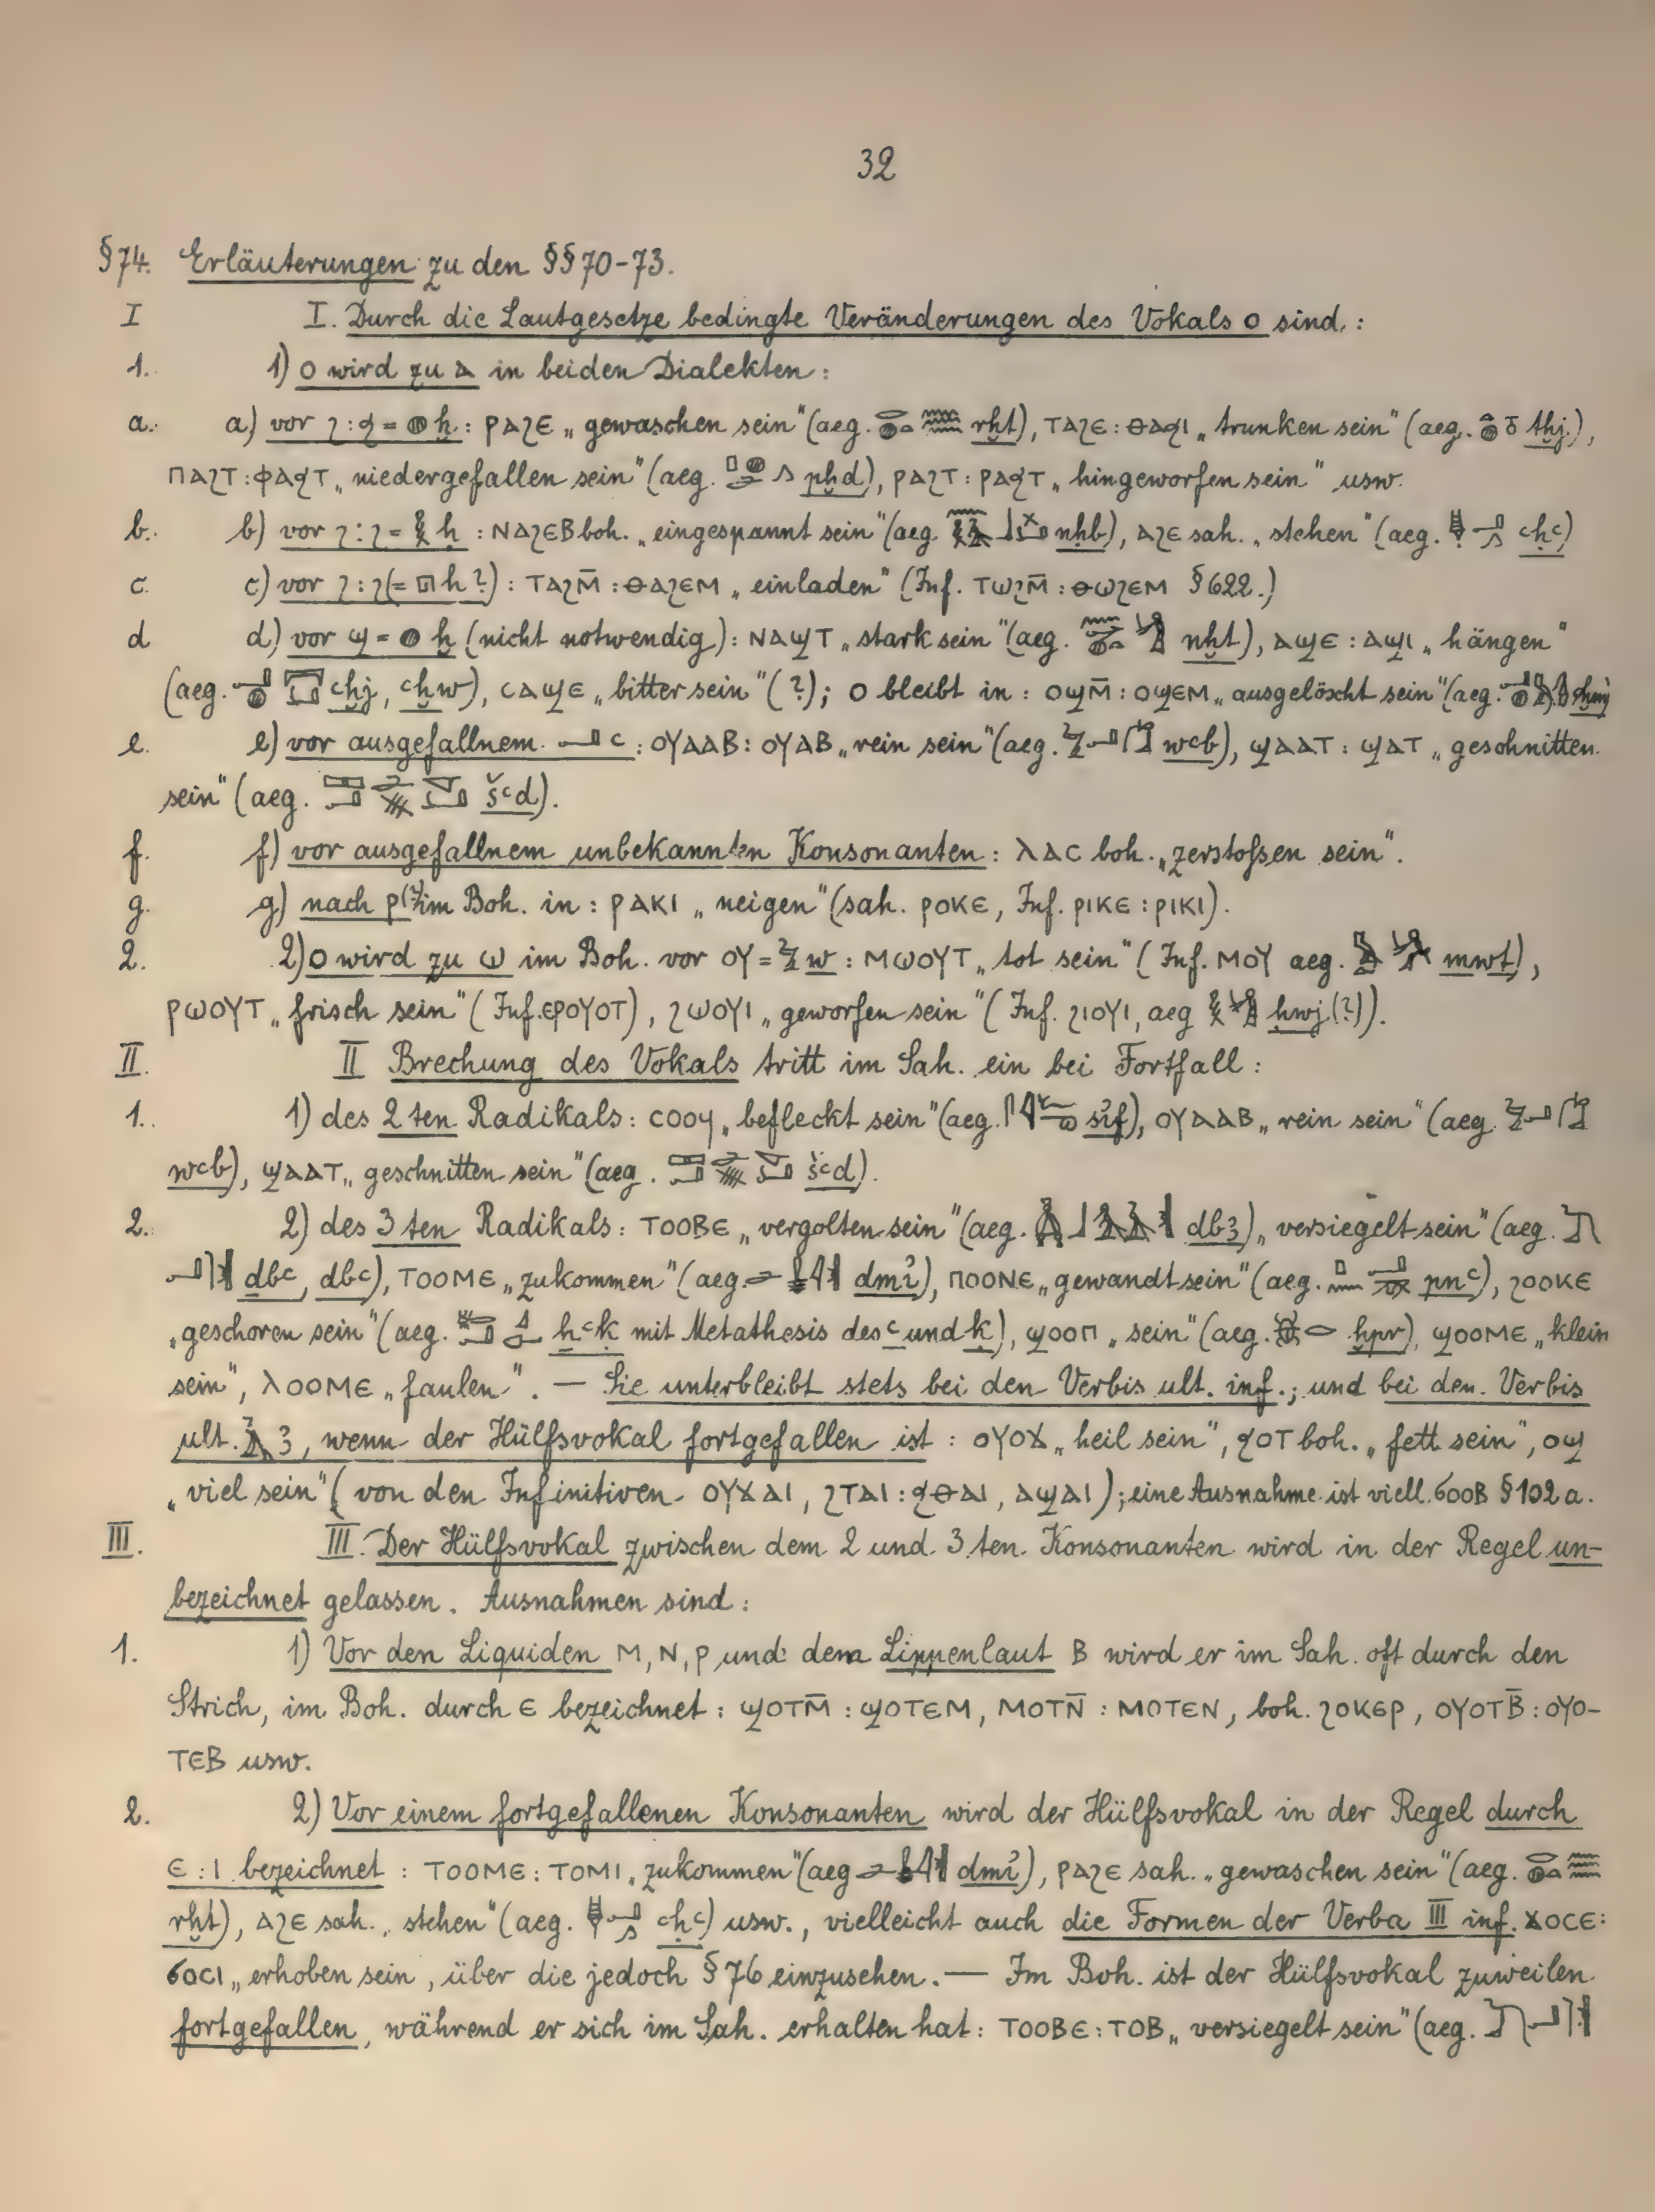 32
§74. Erläuterungen zu den §§70-73.
I I. Durch die Lautgesetze bedingte Veränderungen des Vokals ⲟ sind.:
1. 1) ⲟ wird zu ⲁ in beiden Dialekten:
a. a) vor ϩ:ϧ = 𓐍 ḫ: ⲣⲁϩⲉ „gewaschen sein" (aeg. rḫt), ⲧⲁϩⲉ:ⲑⲁϧⲓ „trunken sein" (aeg. tḫj.),
ⲡⲁϩⲧ:ⲫⲁϧⲧ „niedergefallen sein" (aeg. pḫd), ⲣⲁϩⲧ:ⲣⲁϧⲧ „hingeworfen sein" usw.
b. b) vor ϩ:ϩ = 𓎛 ḥ: ⲛⲁϩⲉⲃ boh. „eingespannt sein" (aeg. nḥb), ⲁϩⲉ sah. „stehen" (aeg. ꜥḥꜥ)
c. c) vor ϩ:ϩ (= 𓉔 h?): ⲧⲁϩⲙ̄:ⲑⲁϩⲉⲙ „einladen" (Inf. ⲧⲱϩⲙ̄:ⲑⲱϩⲉⲙ §622.)
d d) vor ϣ = 𓐍 ḫ (nicht notwendig): ⲛⲁϣⲧ „stark sein" (aeg. nḫt), ⲁϣⲉ:ⲁϣⲓ „hängen"
(aeg. ꜥḫj, ꜥḫw), ⲥⲁϣⲉ „bitter sein" (?); ⲟ bleibt in: ⲟϣⲙ̄:ⲟϣⲉⲙ „ausgelöscht sein" (aeg.
e. e) vor ausgefallnem 𓂝 ꜥ: ⲟⲩⲁⲁⲃ:ⲟⲩⲁⲃ „rein sein" (aeg. wꜥb), ϣⲁⲁⲧ:ϣⲁⲧ „geschnitten
sein" (aeg. šꜥd).
f. f) vor ausgefallnem unbekannten Konsonanten: ⲗⲁⲥ boh. „zerstoßen sein".
g. g) nach ⲣ (?) im Boh. in: ⲣⲁⲕⲓ „neigen" (sah. ⲣⲟⲕⲉ, Inf. ⲣⲓⲕⲉ:ⲣⲓⲕⲓ).
2. 2) ⲟ wird zu ⲱ im Boh. vor ⲟⲩ = 𓅱 w: ⲙⲱⲟⲩⲧ „tot sein" (Inf. ⲙⲟⲩ aeg. mwt),
ⲣⲱⲟⲩⲧ „frisch sein" (Inf. ⲉⲣⲟⲩⲟⲧ), ϩⲱⲟⲩⲓ „geworfen sein" (Inf. ϩⲓⲟⲩⲓ, aeg ḥwj (?)).
II. II Brechung des Vokals tritt im Sah. ein bei Fortfall:
1. 1) des 2 ten Radikals: ⲥⲟⲟϥ „befleckt sein" (aeg. sꞽf), ⲟⲩⲁⲁⲃ „rein sein" (aeg.
wꜥb), ϣⲁⲁⲧ „geschnitten sein" (aeg. šꜥd).
2. 2) des 3 ten Radikals: ⲧⲟⲟⲃⲉ „vergolten sein" (aeg. dbꜣ), „versiegelt sein" (aeg.
ḏbꜥ, dbꜥ), ⲧⲟⲟⲙⲉ „zukommen" (aeg. dmꞽ), ⲡⲟⲟⲛⲉ „gewandt sein" (aeg. pnꜥ), ϩⲟⲟⲕⲉ
„geschoren sein" (aeg. ẖꜥḳ mit Metathesis des ꜥ und ḳ), ϣⲟⲟⲡ „sein" (aeg. ḫpr), ϣⲟⲟⲙⲉ „klein
sein", ⲗⲟⲟⲙⲉ „faulen". — Sie unterbleibt stets bei den Verbis ult. inf.; und bei den Verbis
ult. 𓄿 ꜣ, wenn der Hülfsvokal fortgefallen ist: ⲟⲩⲟϫ „heil sein", ϧⲟⲧ boh. „fett sein", ⲟϣ
„viel sein" (von den Infinitiven ⲟⲩϫⲁⲓ, ϩⲧⲁⲓ:ϧⲑⲁⲓ, ⲁϣⲁⲓ); eine Ausnahme ist viell. ϭⲟⲟⲃ §102a.
III. III. Der Hülfsvokal zwischen dem 2 und 3 ten Konsonanten wird in der Regel un-
bezeichnet gelassen. Ausnahmen sind:
1. 1) Vor den Liquiden ⲙ, ⲛ, ⲣ und dem Lippenlaut ⲃ wird er im Sah. oft durch den
Strich, im Boh. durch ⲉ bezeichnet: ϣⲟⲧⲙ̄:ϣⲟⲧⲉⲙ, ⲙⲟⲧⲛ̄:ⲙⲟⲧⲉⲛ, boh. ϩⲟⲕⲉⲣ, ⲟⲩⲟⲧⲃ̄:ⲟⲩⲟ-
ⲧⲉⲃ usw.
2. 2) Vor einem fortgefallenen Konsonanten wird der Hülfsvokal in der Regel durch
ⲉ:ⲓ bezeichnet: ⲧⲟⲟⲙⲉ:ⲧⲟⲙⲓ „zukommen" (aeg dmꞽ), ⲣⲁϩⲉ sah. „gewaschen sein" (aeg.
rḫt), ⲁϩⲉ sah. „stehen" (aeg. ꜥḥꜥ) usw., vielleicht auch die Formen der Verba III inf. ϫⲟⲥⲉ:
ϭⲟⲥⲓ „erhoben sein, über die jedoch §76 einzusehen. — Im Boh. ist der Hülfsvokal zuweilen
fortgefallen, während er sich im Sah. erhalten hat: ⲧⲟⲟⲃⲉ:ⲧⲟⲃ „versiegelt sein" (aeg.